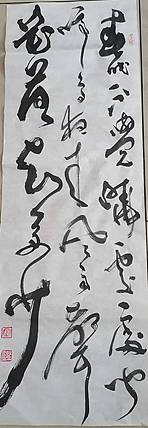 春眠不觉晓处处闻
啼鸟夜来风雨声
花落知多少